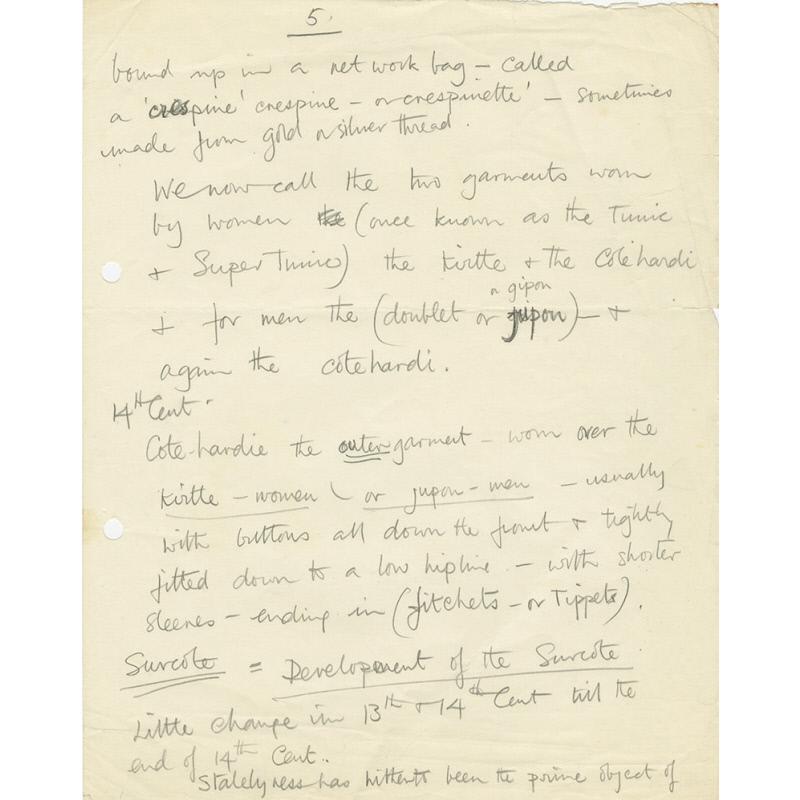 5.
bound up in a net work bag – called
a 'crespine' crespine – or crespinette' – sometimes
made from gold or silver thread.
We now call the two garments worn
by women (once known as the Tunic
+ Super Tunic) the Kirtle + the Cotehardi
or gipon
+ for men the (doublet or jupon) – +
again the cotehardi.
14th Cent.
Cote-hardie the outer garment – worn over the
Kirtle – women or jupon – men – usually
with buttons all down the front + tightly
fitted down to a low hipline – with shorter
sleeves – ending in (fitchets – or Tippets).
Surcote = Development of the Surcote
Little change in 13th + 14th Cent till the
end of 14th Cent..
Statelyness has hitherto been the prime object of